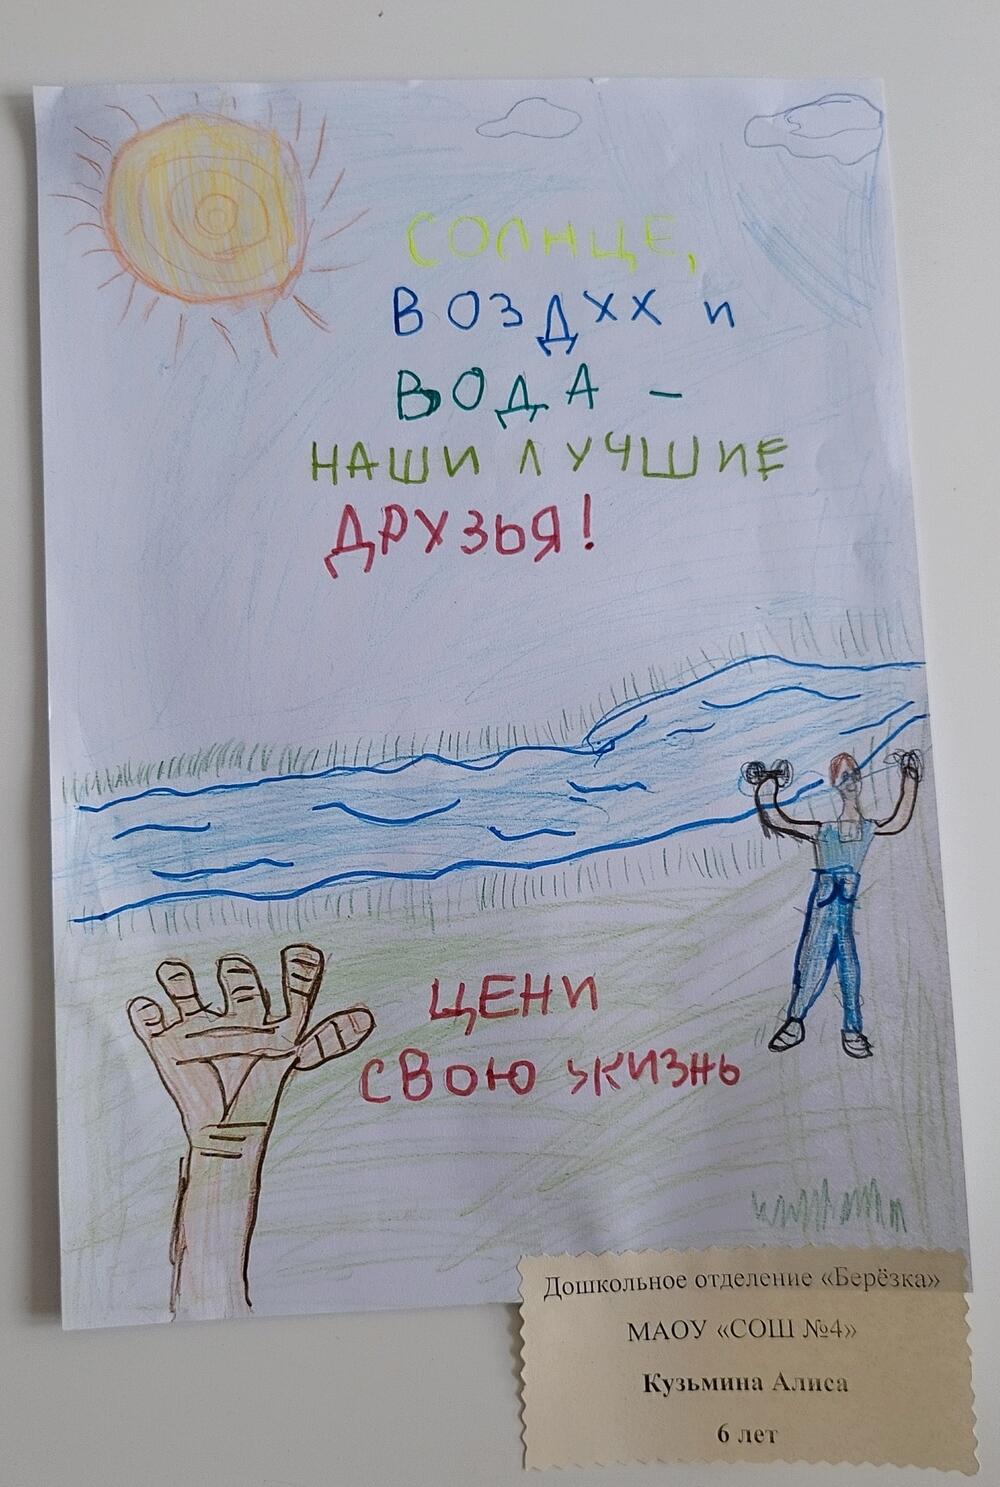 СОЛНЦЕ,
ВОЗДХХ и
ВОДА -
НАШИ ЛУЧШИЕ
ДРУЗЬЯ!
ЦЕНИ
СВОЮ ЖИЗНЬ
Дошкольное отделение «Берёзка»
МАОУ «СОШ №4»
Кузьмина Алиса
6 лет